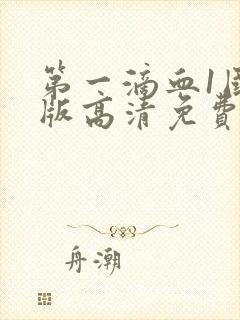 第一滴血1国
版高清免费
舟潮